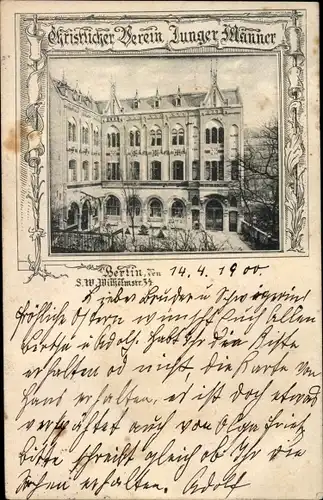 Christlicher Verein Junger Männer
Berlin, den 14. 4. 1900.
S.W. Wilhelmstr. 34
Lieber Bruder u Schwägerin
fröhliche Ostern wünscht Euch Allen
Bertha u Adolf. Habt Ihr die Kiste
erhalten od nicht die Karte von
Hans erhalten, es ist doch etwas
verspätet auch von Olga Fritz
bitte schreibt gleich ob Ihr die
erhalten. Adolf